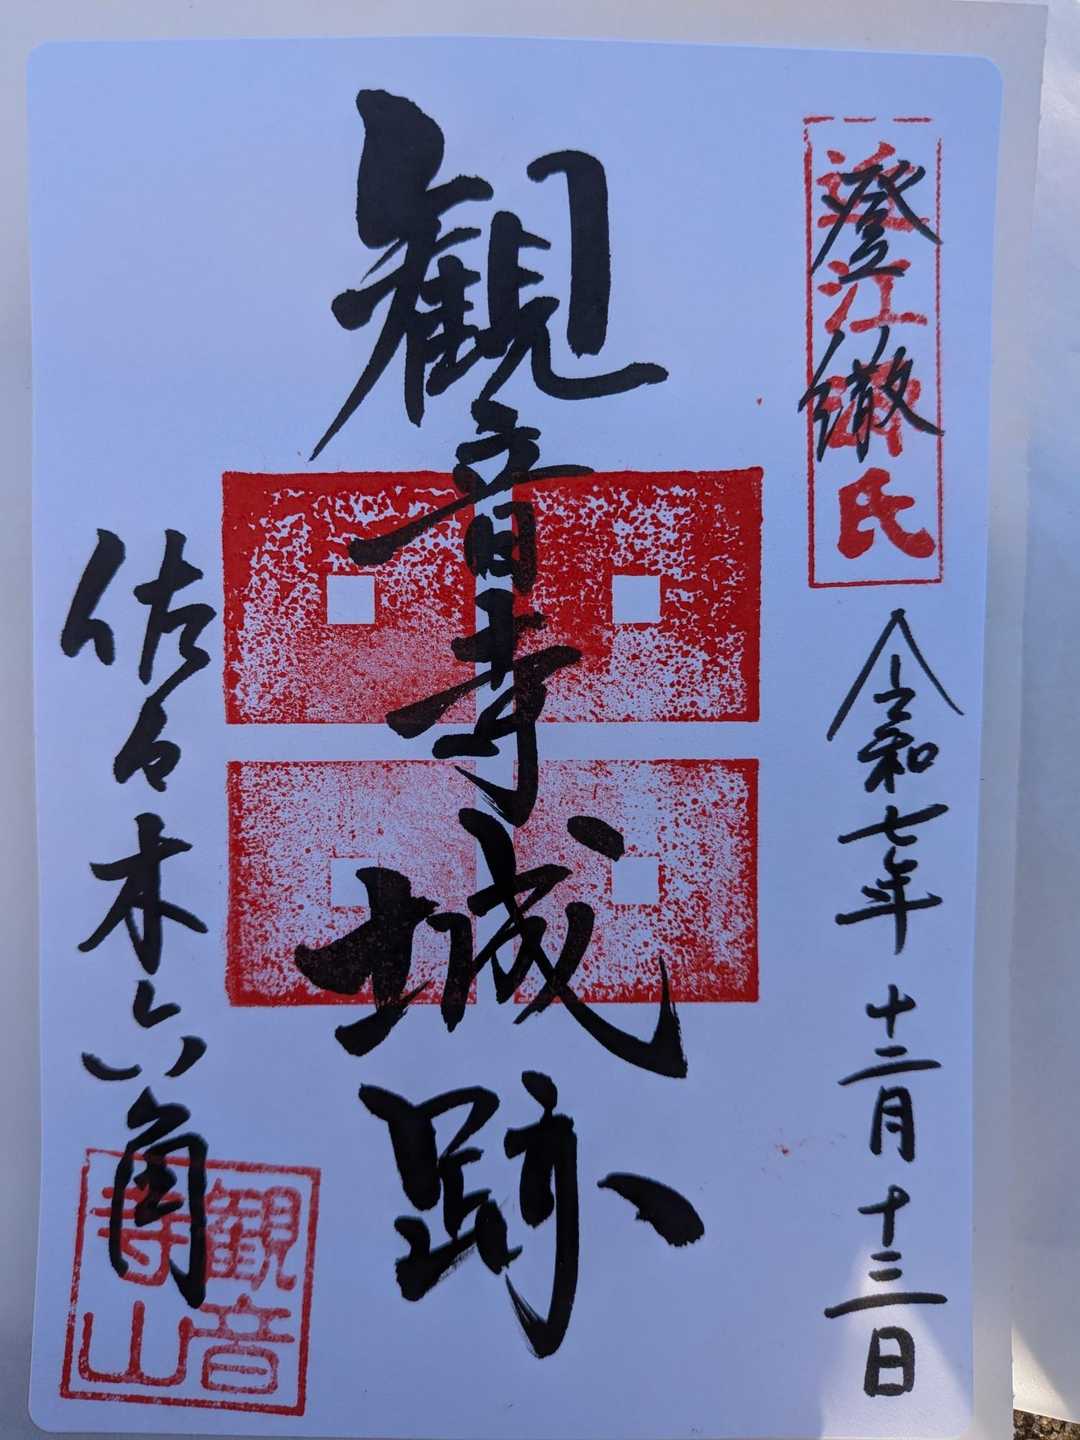 登繖
近江源氏
令和七年 十二月 十三日
観音寺城跡
佐々木六角
観音
寺山